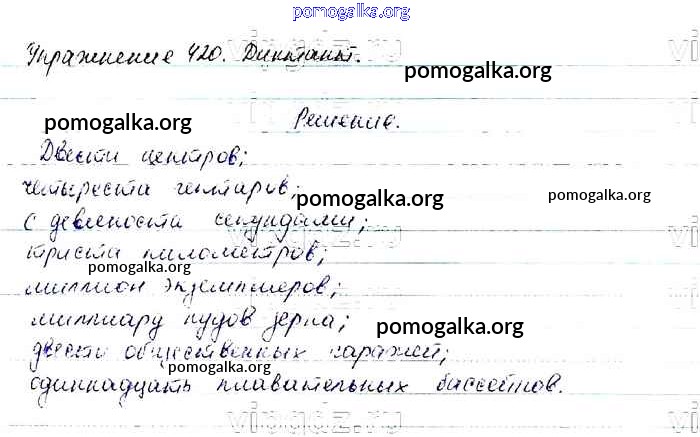 pomogalka.org
Упражнение 420. Диктант.
pomogalka.org
Решение.
pomogalka.org
Двести центров;
четыреста гектаров;
pomogalka.org
pomogalka.org
с девяноста секундами;
триста километров;
pomogalka.org
миллион экземпляров;
миллиард пудов зерна;
pomogalka.org
двести общественных гаражей;
pomogalka.org
одиннадцать плавательных бассейнов.